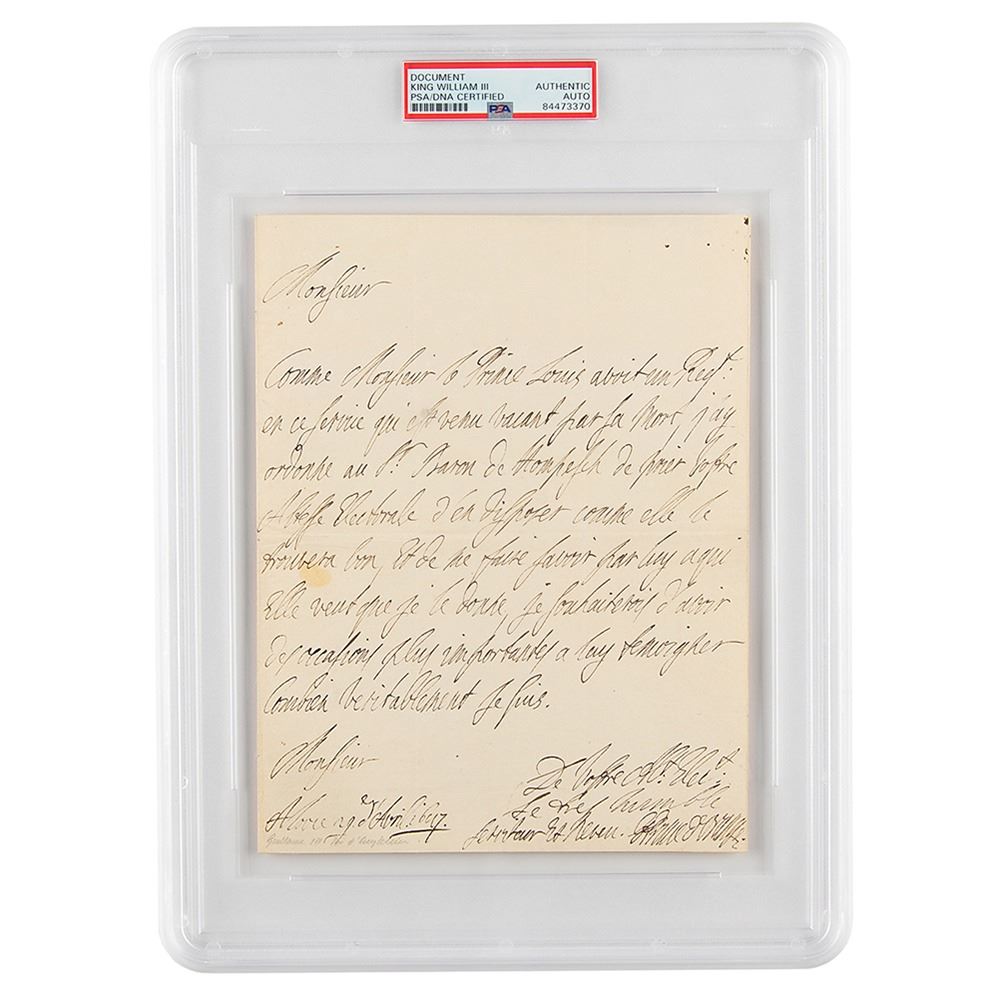 DOCUMENT
KING WILLIAM III
PSA/DNA CERTIFIED
AUTHENTIC
AUTO
84473370
PSA
Monsieur
Comme Monsieur le Prince Louis avoit un Regt:
en ce service qui est venu vacant par sa Mort, j'ay
ordonne au Sr. Baron de Hompesch de prier Vostre
Altesse Electorale d'en disposer comme elle le
trouvera bon, et de me faire savoir par luy a qui
Elle veut que je le donne, je souhaiterois d'avoir
des occasions plus importantes a luy temoigner
Combien veritablement je suis.
Monsieur
De Vostre Alt. Elect:
Le tres humble
serviteur et Neveu. G Prince d'Orange.
d'Avril 1687.
Guillaume III Roi d'Angleterre